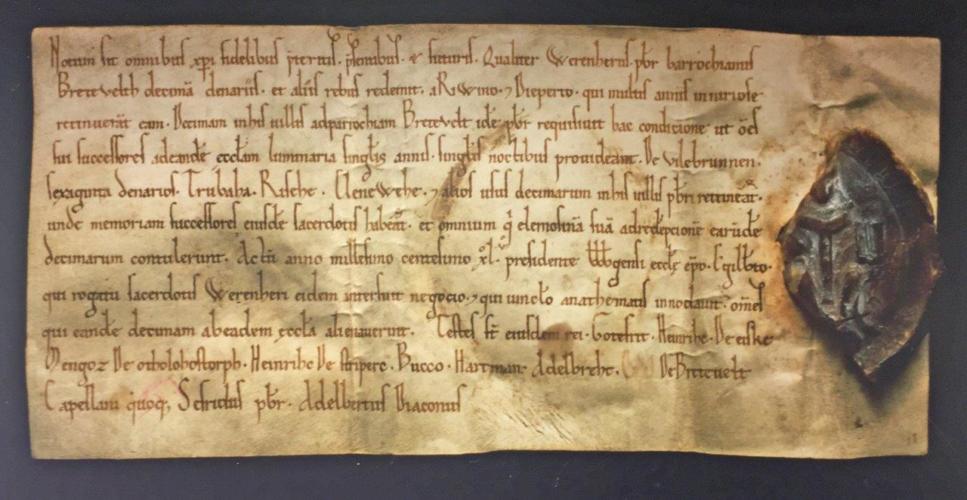 Notum sit omnibus xpi fidelibus preteritis. psentibus. & futuris. Qualiter Werenherus pbr barrochianus
Bretevelth decimā denariis. et aliis rebus redemit. a Riwino. ⁊ Dieperto. qui multis annis iniuriose
retinuerāt eam. Decimam in his villis ad parrochiam Bretevelt idē pbr requisivit hac condicione ut oēs
sui successores ad eandē ecclam luminaria singlis annis. singlis noctibus provideant. De vilebrunnen.
sexaginta denarios. Trubaha. Rische. Clenewehe. ⁊ alios usus decimarum in his villis pbri retineāt.
unde memoriam successores eiusdē sacerdotis habeāt. et omnium q̇ elemosinā suā ad redēpcionē earūdē
decimarum contulerunt. Actū anno millesimo centesimo xl. v presidente Wbgensi eccle epo. Sigilbto.
qui rogatu sacerdotis Werenheri eidem interfuit negocio. ⁊ qui vinclo anathematis innodavit. omes
qui eandē decimam ab eadem eccla alienaverint. Testes st eiusdem rei. Gotefrit. Heinrihc. De eiske
Mengoz De otholobostorph. Heinrihc De stripere. Bucco. Hartman. Adelbreht. De Brittevelt
Capellani quoq; Scridus pbr. Adelbertus Diaconus